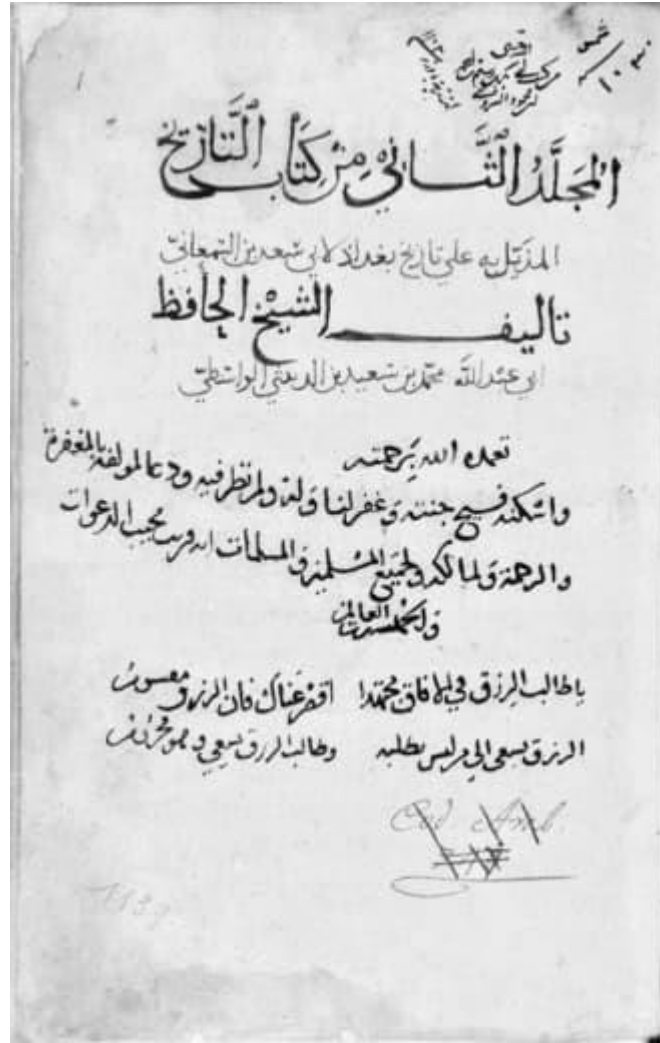 المجَلَّدُ الثَّانِي مِنْ كِتَابِ التَّارِيخِ
المذيّل به علي تاريخ بغداد لابي سَعد بن السمعانيّ
تاليف الشيخ الحافظ
ابي عبد الله محمّد بن سَعيد بن الدبيثي الواسطيّ
تغمده الله برحمته
واسكنه فسيح جنته وغفر لنا وله ولمن نظر فيه ودعا لمولفه بالمغفرة
والرحمة ولمالكه ولجميع المسلمين والمسلمات انه قريب مجيب الدعوات
والحمد لله رب العالمين
ياطالب الرزق في الافاق مجتهدا اقصر عناك فان الرزق مقسوم
الرزق يسعى الي من ليس يطلبه وطالب الرزق يسعي وهو محروم
Cod. Arab.